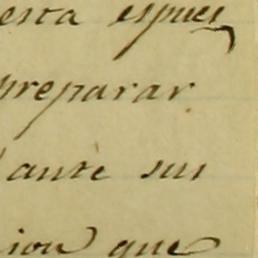 esta espues
preparar
ante sus
ion que